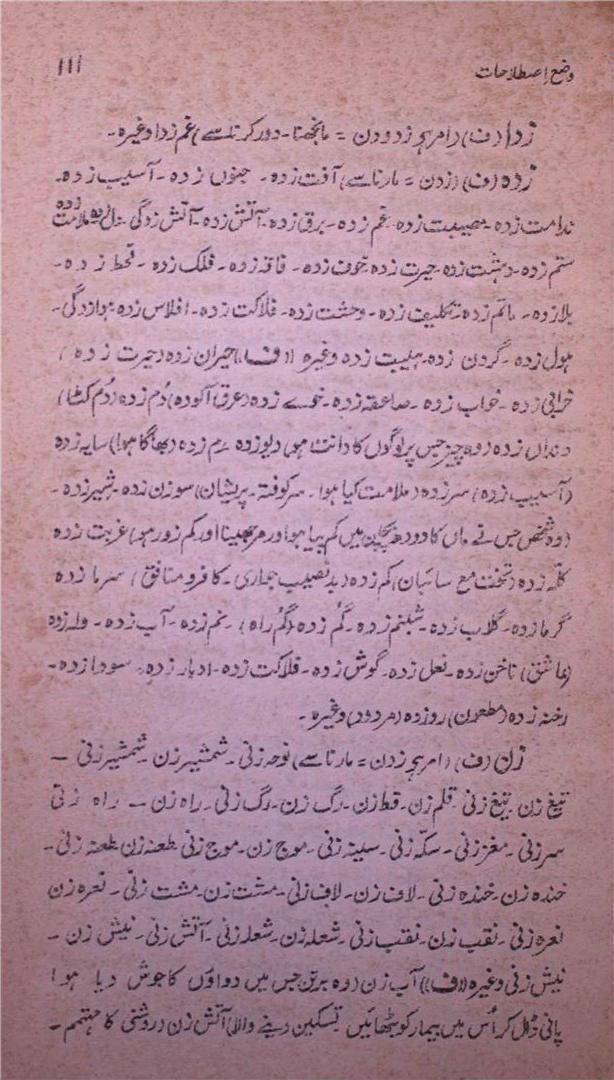 وضع اصطلاحات
۱۱۱
زدا (ف) (امر ہے زدودن = مانجھنا۔ دور کرنا سے) غم زدا وغیرہ۔
زدہ (ف) (زدن = مارنا سے) آفت زدہ۔ جنوں زدہ۔ آسیب زدہ۔
ندامت زدہ۔ مصیبت زدہ۔ غم زدہ۔ برق زدہ۔ آتش زدہ۔ آتش زدگی۔ ملامت زدہ
ستم زدہ۔ دہشت زدہ۔ حیرت زدہ خوف زدہ۔ فاقہ زدہ۔ فلک زدہ۔ قحط زدہ۔
بلا زدہ۔ ماتم زدہ۔ تکلیف زدہ۔ وحشت زدہ۔ فلاکت زدہ۔ افلاس زدہ ہوا زدگی۔
ہول زدہ۔ گردن زدہ۔ ہیبت زدہ وغیرہ ((ف)) حیران زدہ (حیرت زدہ)
خرابی زدہ۔ خواب زدہ۔ صاعقہ زدہ۔ خوے زدہ (عرق آلودہ) دُم زدہ (دُم کٹا)
دنداں زدہ (وہ چیز جس پر لوگوں کا دانت ہو) دیو زدہ رم زدہ (بھاگا ہوا) سایہ زدہ
(آسیب زدہ) سر زدہ (ملامت کیا ہوا۔ سرکوفتہ۔ پریشان) سوزن زدہ۔ شیر زدہ۔
(وہ شخص جس نے ماں کا دودھ بچپن میں کم پیا ہو اور کم زور ہو) غربت زدہ
کلّہ زدہ (تخت مع سائبان) کم زدہ (بد نصیب جواری۔ کافر و منافق) سرما زدہ
گرما زدہ۔ گلاب زدہ۔ شبنم زدہ۔ گُم زدہ (گُم راہ)۔ نم زدہ۔ آب زدہ۔ ولہ زدہ
(عاشق) ناخن زدہ۔ نعل زدہ۔ گوش زدہ۔ فلاکت زدہ۔ ادبار زدہ۔ سودا زدہ۔
رخنہ زدہ (مطعون) روزدہ (مردود) وغیرہ۔
زن (ف) (امر ہے زدن = مارنا سے) نوحہ زنی۔ شمشیر زن۔ شمشیر زنی۔
تیغ زن۔ تیغ زنی۔ قلم زن۔ قط زن۔ رگ زن۔ رگ زنی۔ راہ زن۔ راہ زنی
سر زنی۔ مغز زنی۔ سکّہ زنی۔ سینہ زنی۔ موج زن۔ موج زنی طعنہ زن طعنہ زنی۔
خندہ زن۔ خندہ زنی۔ لاف زن۔ لاف زنی۔ مشت زن۔ مشت زنی۔ نعرہ زن
نعرہ زنی۔ نقب زن۔ نقب زنی۔ شعلہ زن۔ شعلہ زنی۔ آتش زنی۔ نیش زن۔
نیش زنی وغیرہ ((ف)) آب زن (وہ برتن جس میں دواؤں کا جوش دیا ہوا
پانی ڈال کر اُس میں بیمار کو بٹھائیں تسکین دینے والا) آتش زن (روشنی کا مہتمم۔